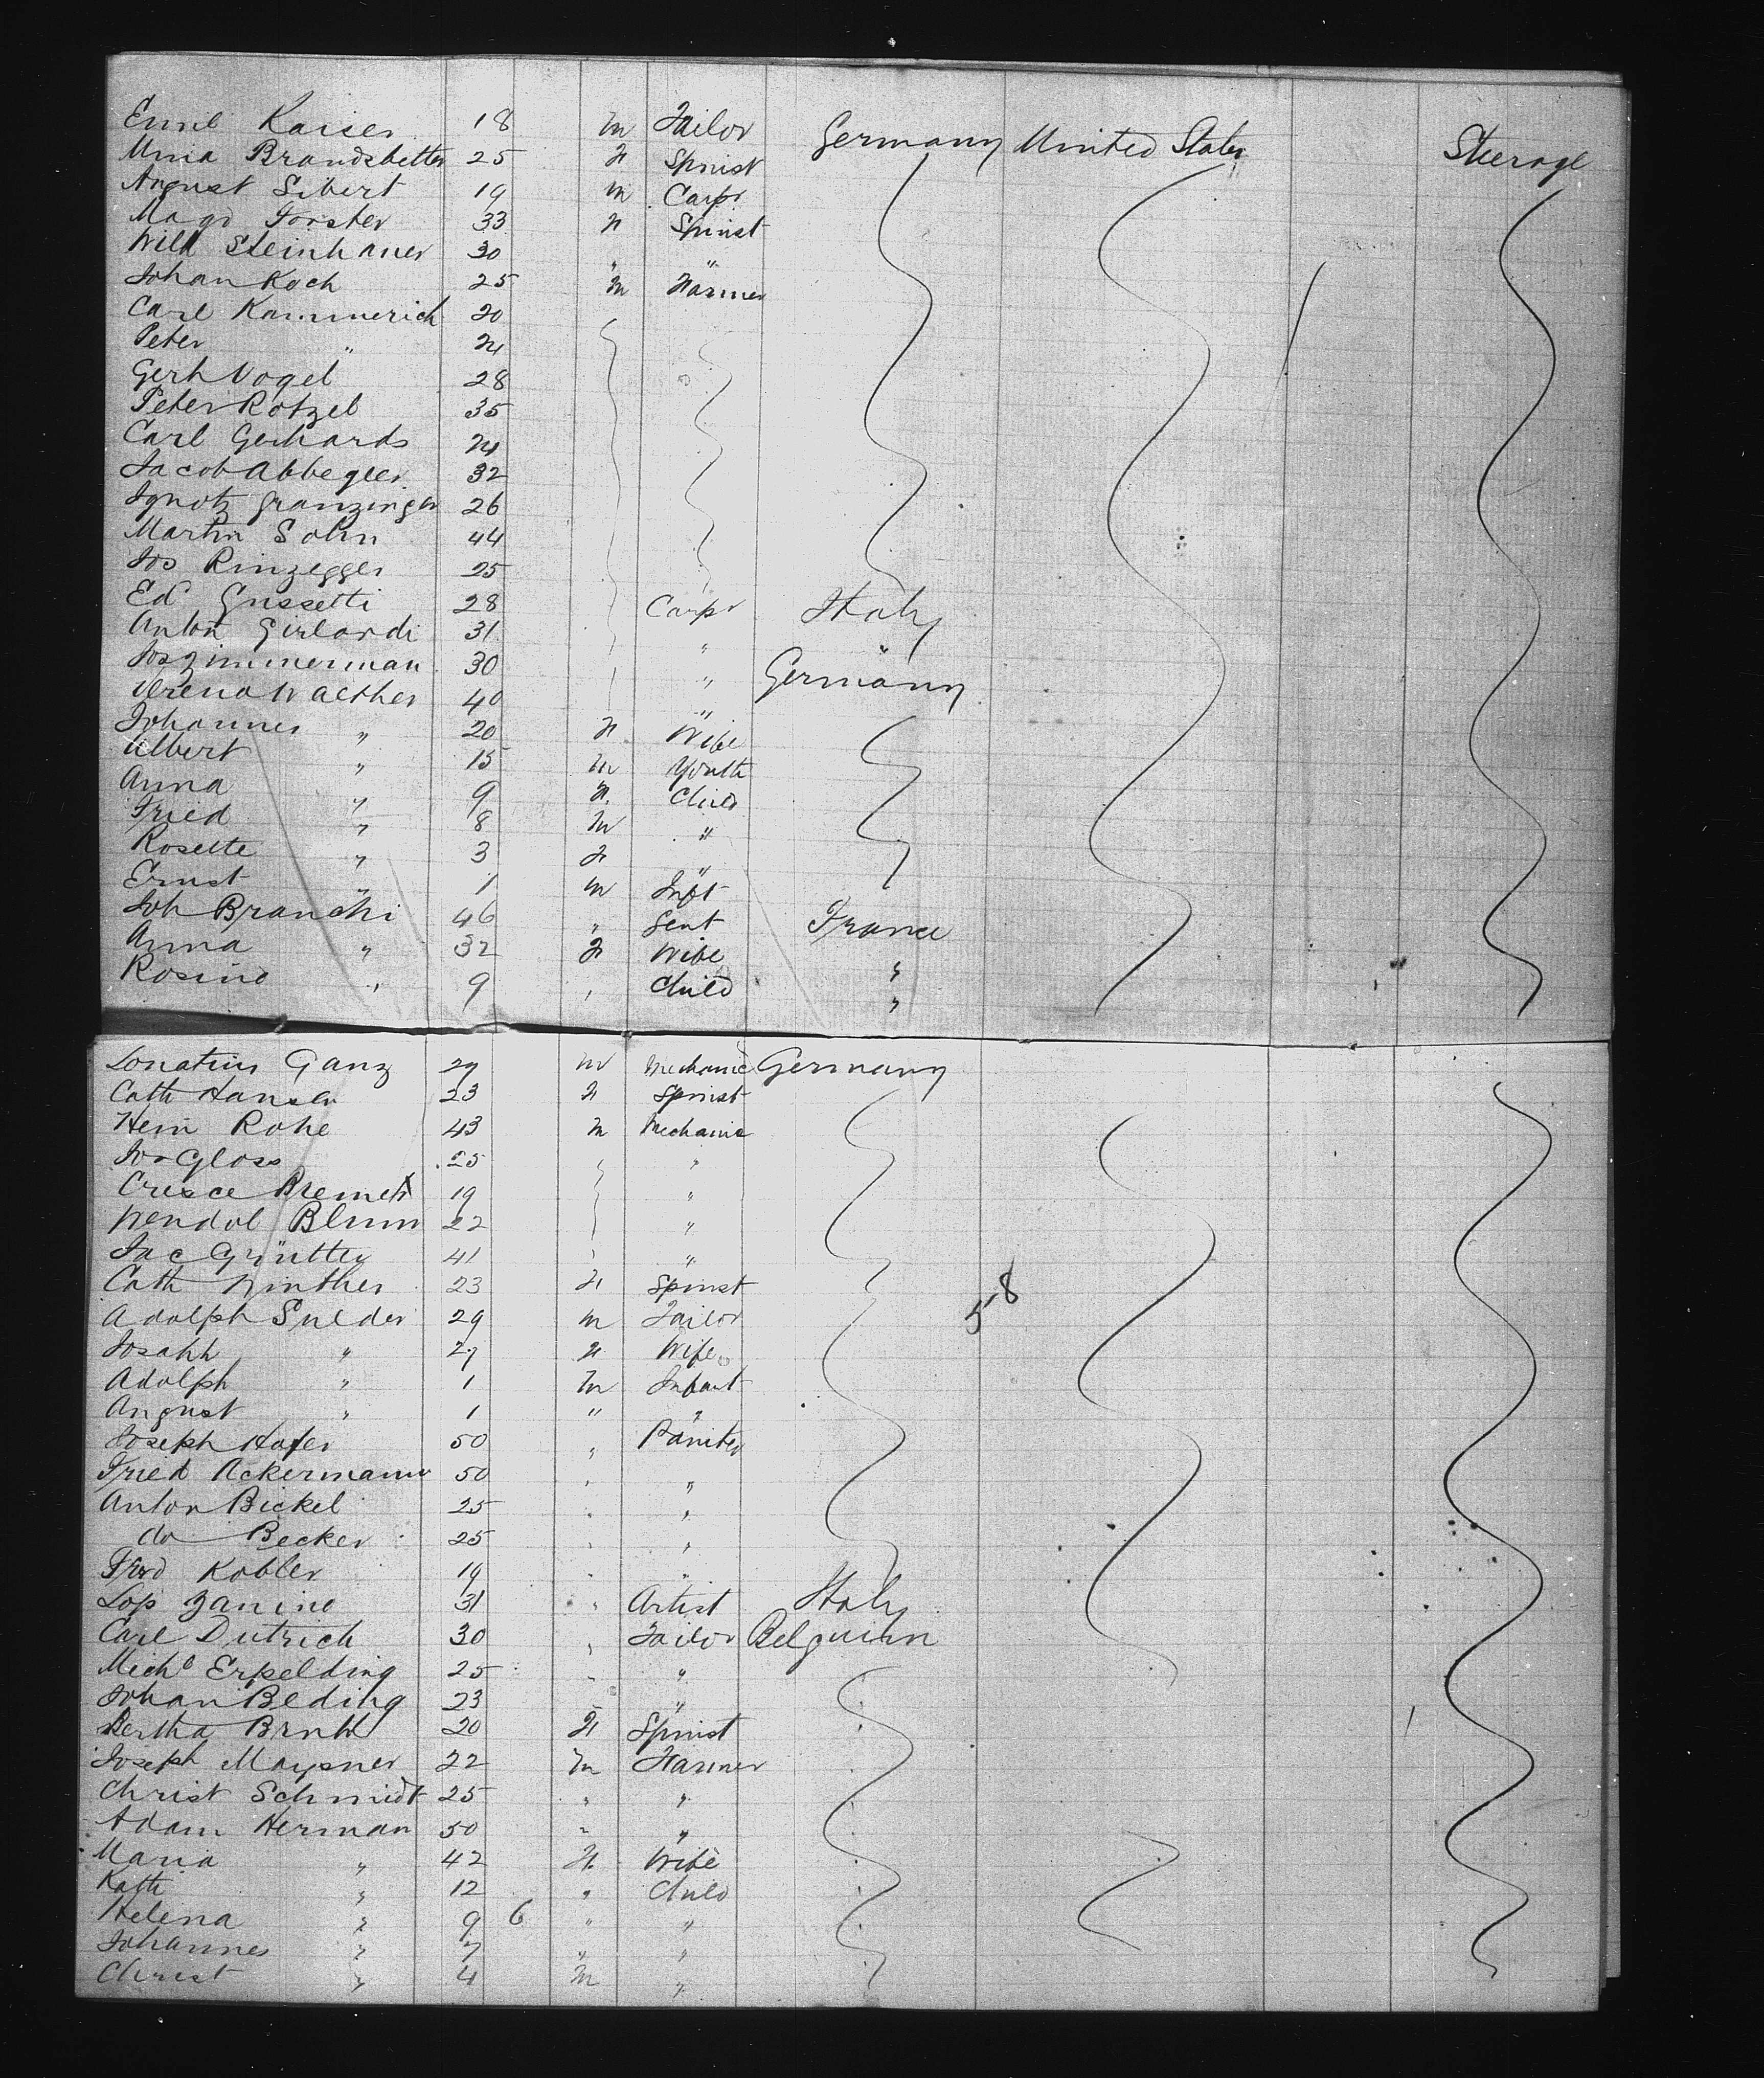 Emil Kaiser 18 m Tailor Germany United States Steerage
Mina Brandstetter 25 f Spinst
August Sibert 19 m Carpr
Magd Forster 33 f Spinst
Wilh Steinhauer 30 " "
Johan Koch 25 m Farmer
Carl Kammerich 20
Peter " 24
Gerh Vogel 28
Peter Rotzel 35
Carl Gerhards 24
Jacob Abbegler 32
Ignatz Granzinger 26
Martin Sohn 44
Jos Rinzegger 25
Ed Gussetti 28 Carpr Italy
Anton Girlardi 31 " "
Jos Zimmerman 30 " Germany
Verena Walther 40 "
Johannes " 20 f Wife
Albert " 15 m Youth
Anna " 9 f Child
Fried " 8 m "
Rosette " 3 f "
Ernst " 1 m Inft
Joh Branchi 46 " Gent France
Anna " 32 f Wife "
Rosina " 9 " Child "
Ganz 29 m Mechanic Germany
Cath Hansen 23 f Spinst
Hein Rohe 43 m Mechanic
Jos Gloss 25 "
19 "
Wendol Blum 22 "
Jac Grütter 41 "
Cath Winther 23 f Spinst
58
Adolph Sulder 29 m Tailor
Josahh " 27 f Wife
Adolph " 1 m Infant
August " 1 " "
Joseph Hafer 50 " Painter
Fried Ackermann 50 " "
Anton Bickel 25 " "
do Becker 25 " "
Ferd Kobler 19 " "
Lop Zanino 31 " Artist Italy
Carl Dutrich 30 " Tailor Belguim
Michl Erpelding 25 " "
Johan Beding 23 "
Bertha 20 f Spinst
Joseph Maysner 22 m Farmer
Christ Schmidt 25 " "
Adam Herman 50 " "
Maria " 42 f Wife
Kath " 12 " Child
Helena " 9 6 " "
Johannes " 7 " "
Christ " 4 m "